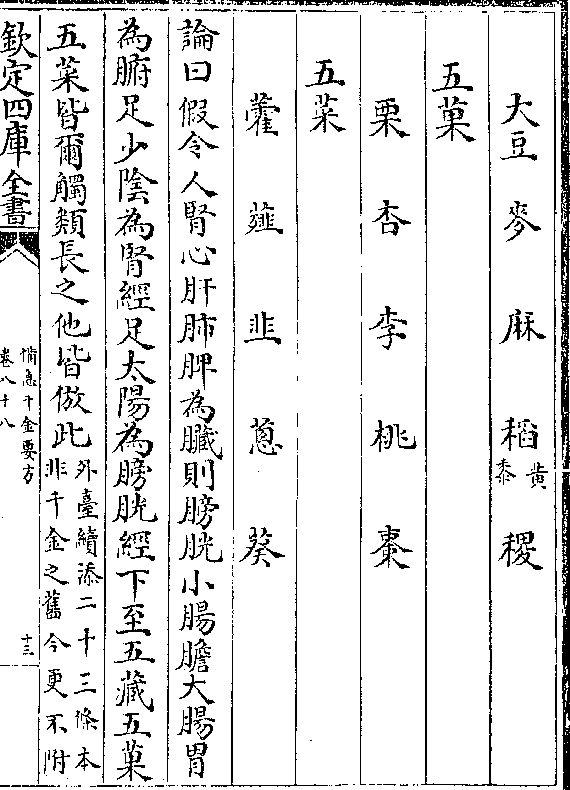 大豆 麥 麻 稻 黄黍 稷
五菓
栗 杏 李 桃 棗
五菜
藿 薤 韭 葱 葵
論曰假令人腎心肝肺脾為臓則膀胱小腸膽大腸胃
為腑足少陰為腎經足太陽為膀胱經下至五藏五菓
五菜皆爾觸類長之他皆倣此外臺續添二十三條本
非千金之舊今更不附
欽定四庫全書
備急千金要方
卷八十八
十三